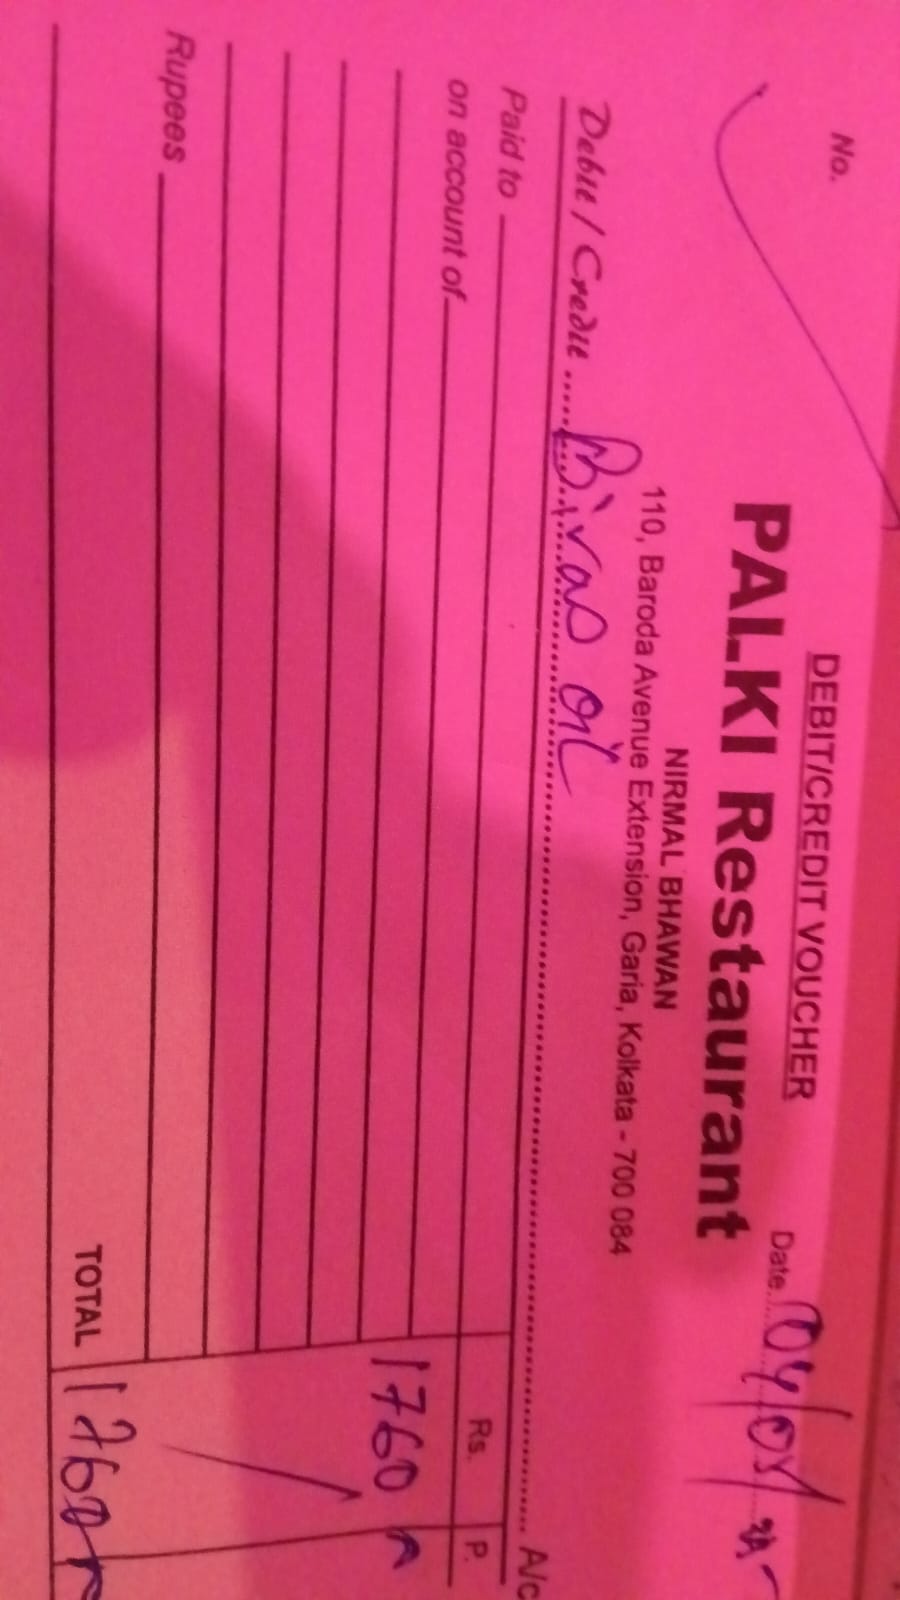 DEBIT/CREDIT VOUCHER
No.
Date
PALKI Restaurant
NIRMAL BHAWAN
110, Baroda Avenue Extension, Garia, Kolkata - 700 084
Debit / Credit ..... oil ..... A/c
Paid to
Rs. P.
on account of
1760
Rupees
TOTAL 1760